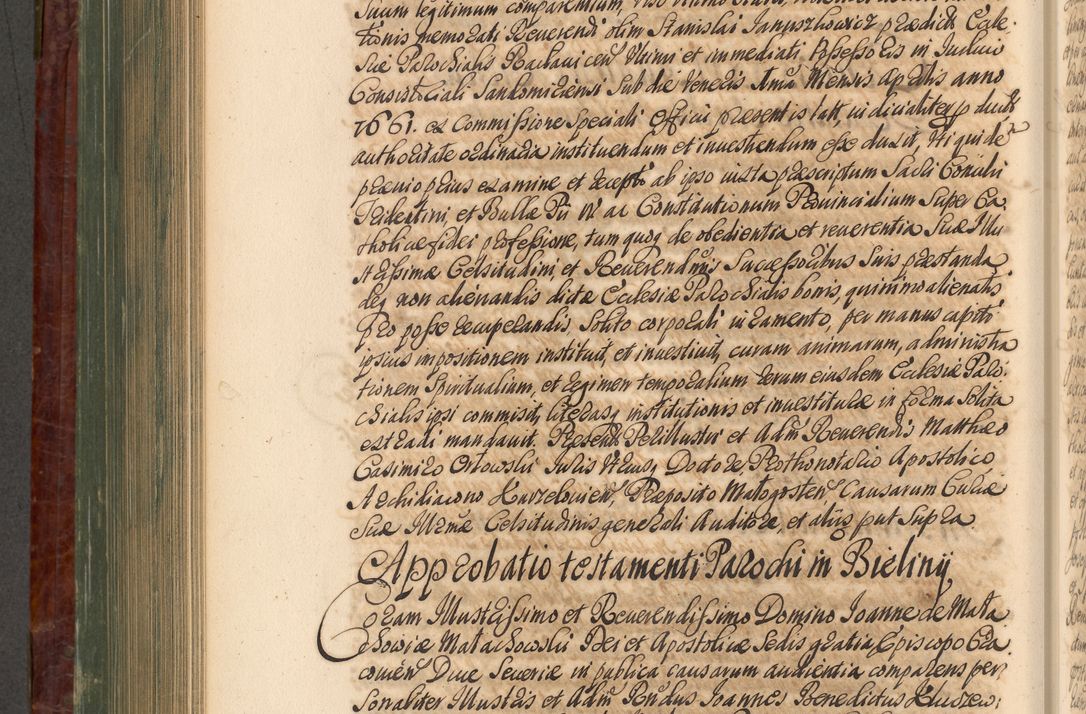 Suum legitimum comparentium, viso
tionis memorati Reverendi olim Stanislai Januszkowicz prædictæ Eccle-
siæ Parochialis Raclavicen Ultimi et immediati possessoris in Judicio
Consistoriali Sandomiriensi Sub die Veneris Mensis Aprilis anno
1661. ex Commissione Speciali Officii præsentis latt, iudicialiter productis
authoritate ordinaria instituendum et investiendum esse duxit, Uti quidem
prævio prius examine et recepto ab ipso iuxta præscriptum Sacri Concilii
Tridentini, et Bullæ Pii IV ac Constitutionum Provincialium super Ca-
tholicæ fidei professione, tum quoq de obedientia et reverentia Suæ Illu-
strissimæ Celsitudini, et Reverendmis Successoribus Suis præstanda
deq non alienandis dictæ Ecclesiæ Parochialis bonis, quinimo alienatis
pro posse recuperandis, Solito corporali iuramento, per manus capiti
ipsius impositionem instituit, et investivit, curam animarum, administra-
tionem Spiritualium, et regimen temporalium rerum eiusdem Ecclesiæ Paro-
chialis ipsi commisit, literasq institutionis et investituræ in forma Solita
extradi mandavit. Præsent Perillustri et Adm Reverendis Matthæo
Casimiro Orłowski Juris Utriusq Doctore, Prothonotario Apostolico
Archidiacono Kurzelovien, Præposito Małogosten Causarum Curiæ
Suæ Illrmæ Celsitudinis generali Auditore, et aliis, put Supra
Approbatio testamenti Parochi in Bieliny
Coram Illustrissimo et Reverendissimo Domino Joanne de Mała-
chowice Małachowski Dei et Apostolicæ Sedis gratia, Episcopo Cra-
covien Duce Severiæ in publica causarum audientia comparens per-
sonaliter Illustris et Adm Rndus Joannes Benedictus